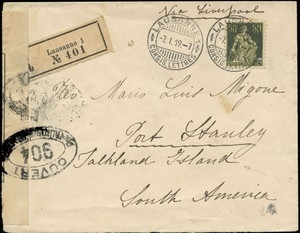 Via Liverpool
Lausanne 1
№ 401
LAUSANNE
-7.I.19.-7
CONSIG. LETTRES
80
Rev Mario Luis Migone
Port Stanley
Falkland Island
South America
OUVERT
904